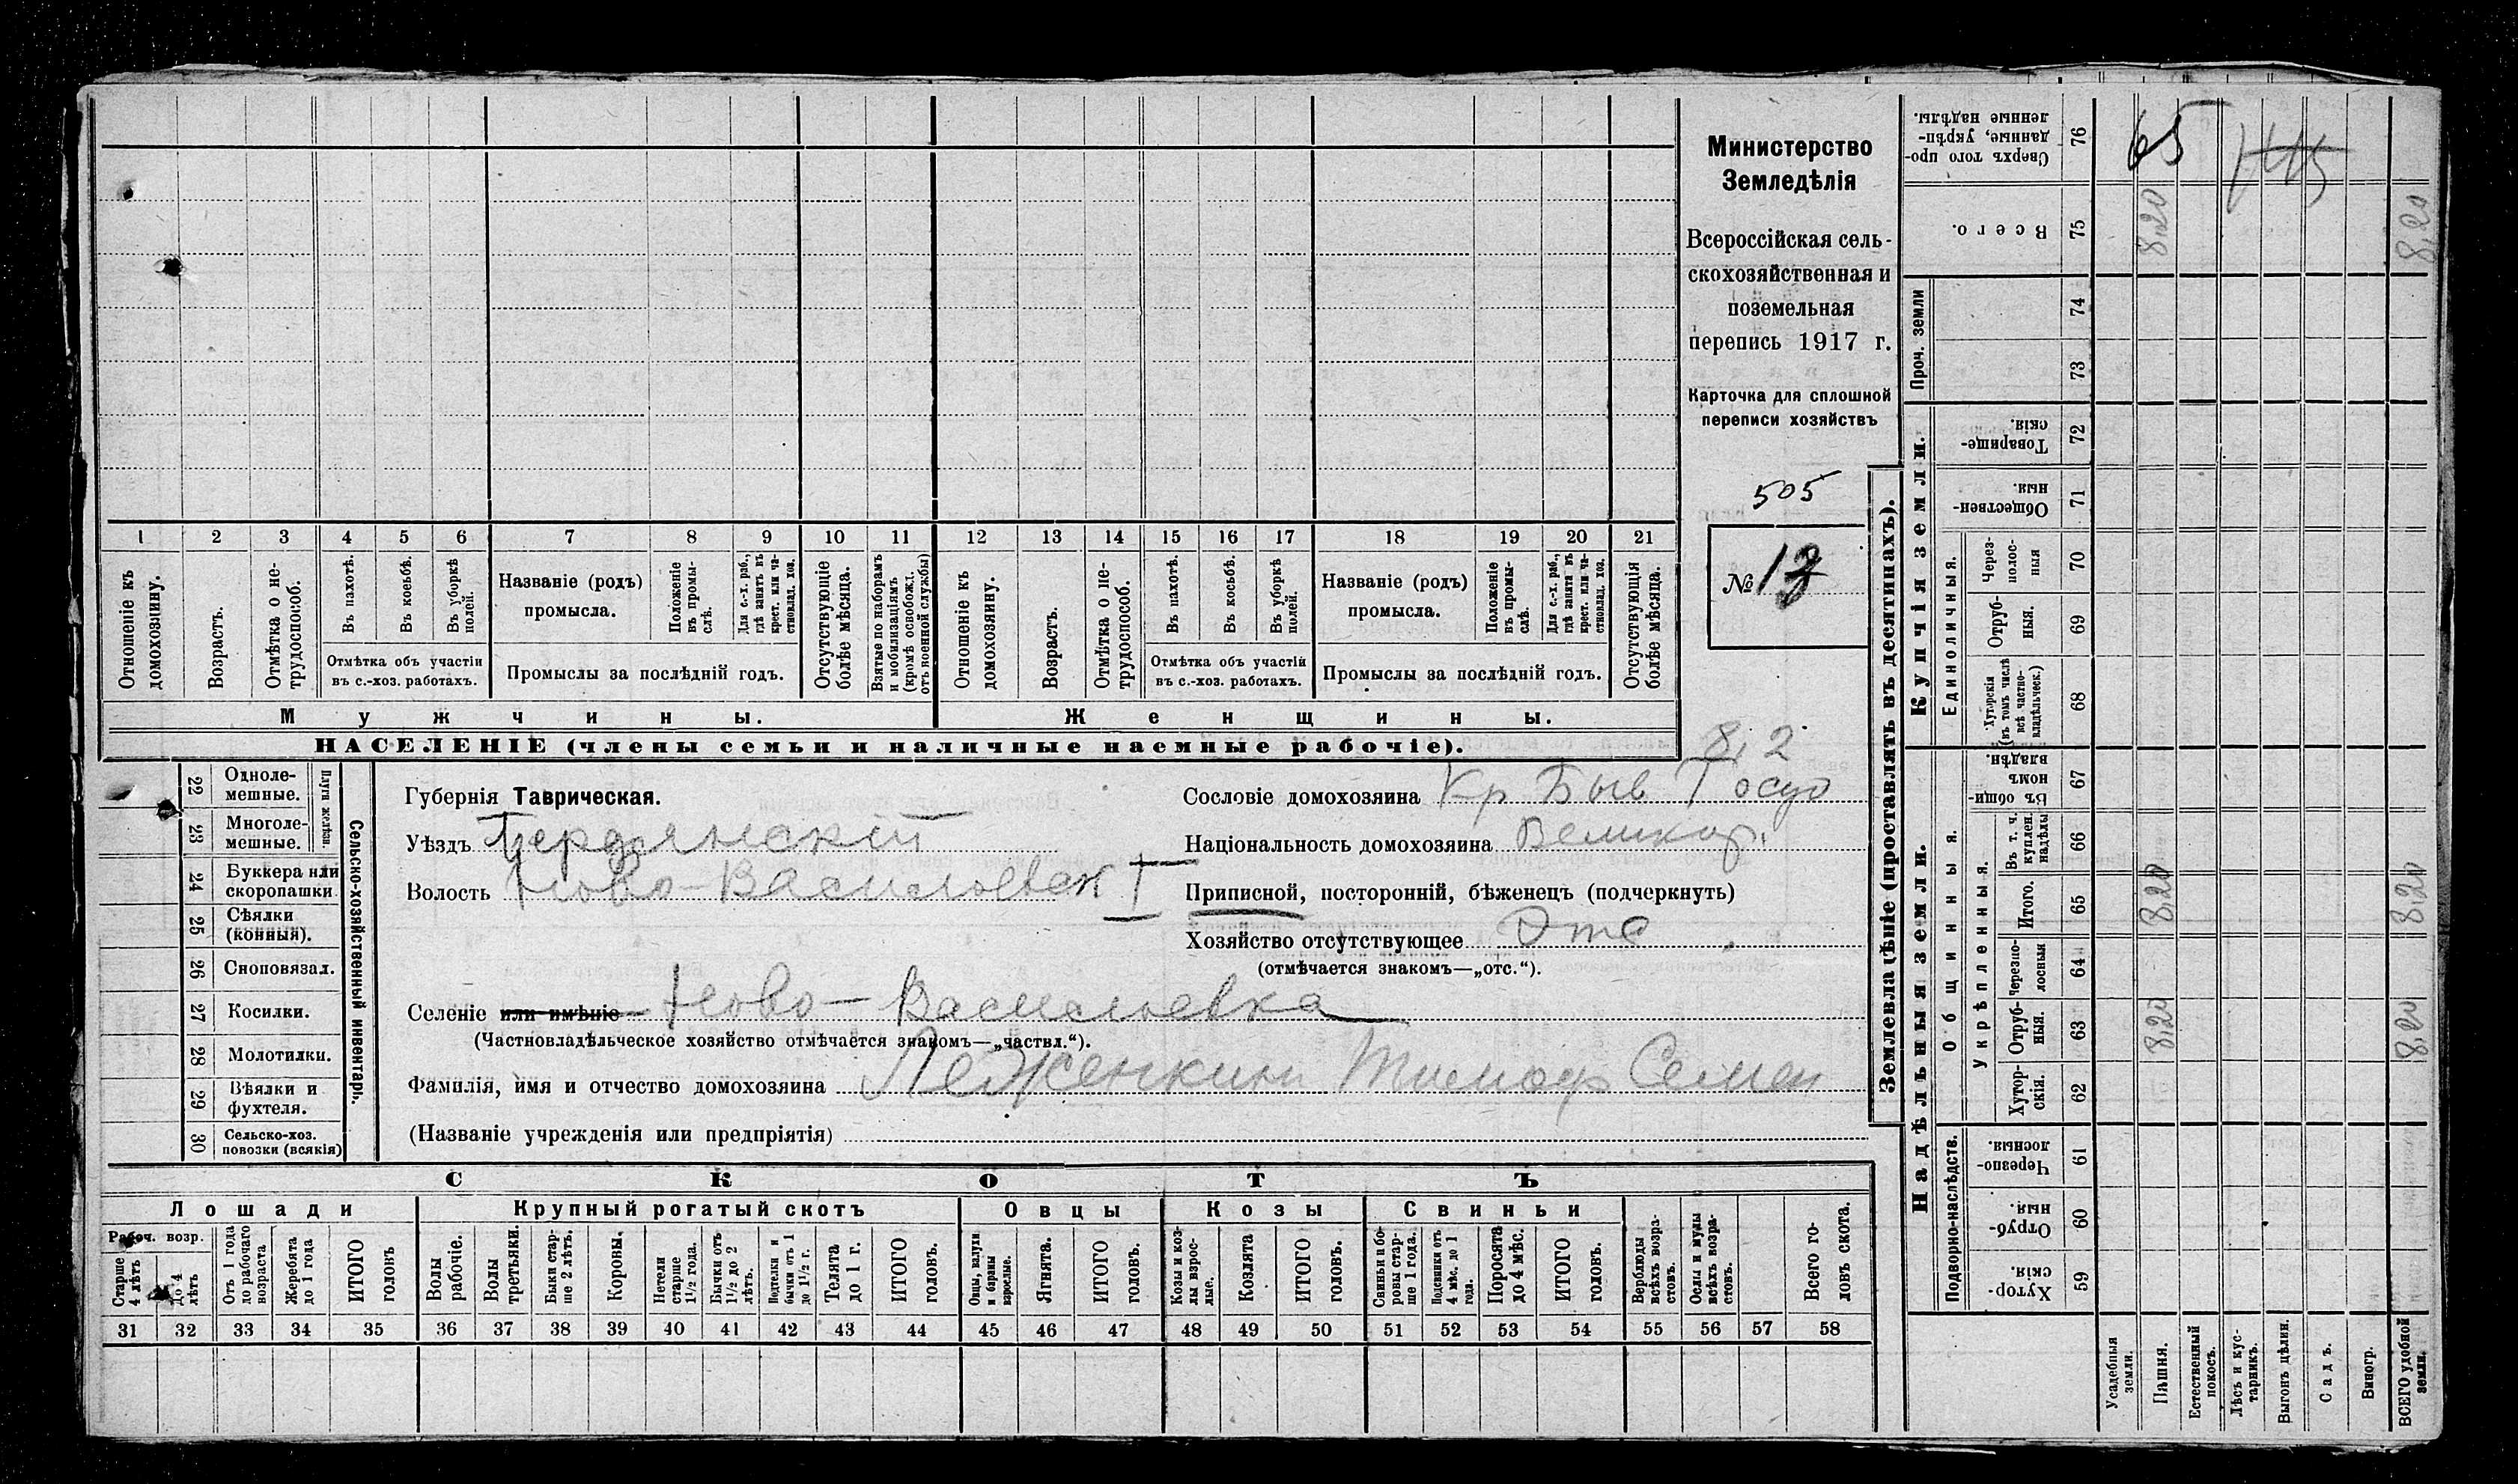 Министерство
Земледѣлія
Всероссійская сель-
скохозяйственная и
поземельная
перепись 1917 г.
Карточка для сплошной
переписи хозяйствъ
505
№ 13
1 2 3 4 5 6 7 8 9 10 11 12 13 14 15 16 17 18 19 20 21
Отношеніе къ домохозяину.
Возрастъ.
Отмѣтка о не-трудоспособ.
Въ пахотѣ.
Въ косьбѣ.
Въ уборкѣ полей.
Отмѣтка объ участіи въ с.-хоз. работахъ.
Названіе (родъ) промысла.
Положеніе въ промы-слѣ.
Для с.-х. раб., гдѣ занятъ въ крест. или ча-стновлад. хоз.
Промыслы за послѣдній годъ.
Отсутствующіе болѣе мѣсяца.
Взятые по наборамъ и мобилизаціямъ (кромѣ освобожд. отъ военной службы)
Отношеніе къ домохозяину.
Возрастъ.
Отмѣтка о не-трудоспособ.
Въ пахотѣ.
Въ косьбѣ.
Въ уборкѣ полей.
Отмѣтка объ участіи въ с.-хоз. работахъ.
Названіе (родъ) промысла.
Положеніе въ промы-слѣ.
Для с.-х. раб., гдѣ занята въ крест. или ча-стновлад. хоз.
Промыслы за послѣдній годъ.
Отсутствующія болѣе мѣсяца.
Мужчины. Женщины.
НАСЕЛЕНІЕ (члены семьи и наличные наемные рабочіе).
22 Одноле-мешные.
23 Многоле-мешные.
Плуги желѣзн.
24 Буккера или скоропашки
25 Сѣялки (конныя).
26 Сноповязал.
27 Косилки.
28 Молотилки.
29 Вѣялки и фухтеля.
30 Сельско-хоз. повозки (всякія)
Сельско-хозяйственный инвентарь.
8,2
Губернія Таврическая.
Сословіе домохозяина Кр Быв Госуд
Уѣздъ Бердянскій
Національность домохозяина Великор.
Волость Ново-Васильевск I
Приписной, посторонній, бѣженецъ (подчеркнуть)
Хозяйство отсутствующее Отс
(отмѣчается знакомъ—„отс.“).
Селеніе или имѣніе Ново-Васильевка
(Частновладѣльческое хозяйство отмѣчается знакомъ—„частвл.“).
Фамилія, имя и отчество домохозяина Тимоф Семен
(Названіе учрежденія или предпріятія)
СКОТЪ
Лошади Крупный рогатый скотъ Овцы Козы Свиньи
Рабоч. возр.
Старше 4 лѣтъ
До 4 лѣтъ
Отъ 1 года до рабочаго возраста
Жеребята до 1 года
ИТОГО головъ
Волы рабочіе.
Волы третьяки.
Быки стар-ше 2 лѣтъ.
Коровы.
Нетели старше 1½ года.
Бычки отъ 1½ до 2 лѣтъ.
Подтелки и бычки отъ 1 до 1½ г.
Телята до 1 г.
ИТОГО головъ.
Овцы, валухи и бараны взрослые.
Ягнята.
ИТОГО головъ.
Козы и коз-лы взрос-лые.
Козлята
ИТОГО головъ.
Свиньи и бо-ровы стар-ше 1 года.
Подсвинки отъ 4 мѣс. до 1 года.
Поросята до 4 мѣс.
ИТОГО головъ.
Верблюды всѣхъ возра-стовъ.
Ослы и мулы всѣхъ возра-стовъ.
Всего го-ловъ скота.
31 32 33 34 35 36 37 38 39 40 41 42 43 44 45 46 47 48 49 50 51 52 53 54 55 56 57 58
Землевладѣніе (проставлять въ десятинахъ).
Надѣльныя земли. Купчія земли.
Проч. земли
Подворно-наслѣдств.
Общинныя.
Укрѣпленныя.
Единоличныя.
76 Сверхъ того про-данные, укрѣп-ленные надѣлы. 65
75 Всего. 8,20 8,20
74
73
72 Товарище-скія.
71 Обществен-ныя.
70 Через-полос-ныя
69 Отруб-ныя.
68 Хуторскія (въ томъ числѣ всѣ частно-владѣльческ.)
67 Въ общи-номъ владѣн.
66 Въ т. ч. куплен. надѣлы
65 Итого. 8,20 8,20
64 Черезпо-лосныя
63 Отруб-ныя. 8,20 8,20
62 Хутор-скія.
61 Черезпо-лосныя
60 Отруб-ныя.
59 Хутор-скія
Усадебныя земли.
Пашня.
Естественный покосъ.
Лѣсъ и кус-тарникъ.
Выгонъ цѣлин.
Садъ.
Виногр.
ВСЕГО удобной земли.